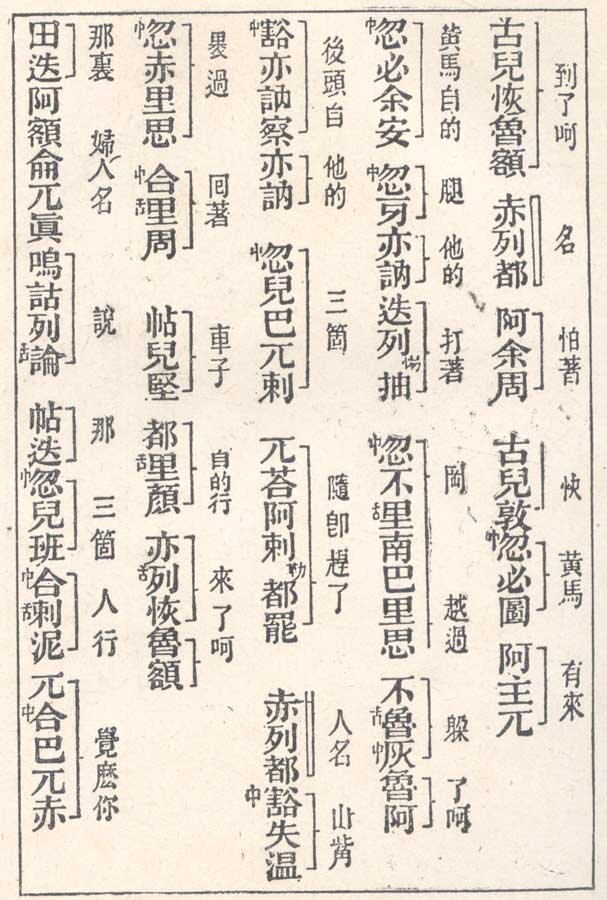 到了呵 名 怕著 快 黃馬 有來
古兒恢魯額 赤列都 阿余周 古兒敦 中忽必圖 阿主兀
黃馬自的 腿 他的 打著 岡 越過 躲 了呵
中忽必余安 中忽牙亦訥 迭列惕抽 中忽不舌里南巴里思 不舌魯中灰魯阿
後頭自 他的 三箇 隨卽趕了 人名 山觜
中豁亦訥察亦訥 中忽兒巴兀剌 兀荅阿剌勒都罷 赤列都 中豁失溫
過 囘著 車子 自的行 來了呵
中忽赤里思 中合舌里周 帖兒堅 都舌里顏 亦舌列恢魯額
那裏 婦人名 說 那 三箇 人行 覺麽你
田迭阿額侖兀眞嗚詁列舌論 帖迭中忽兒班中合舌剌泥 兀中合巴兀赤